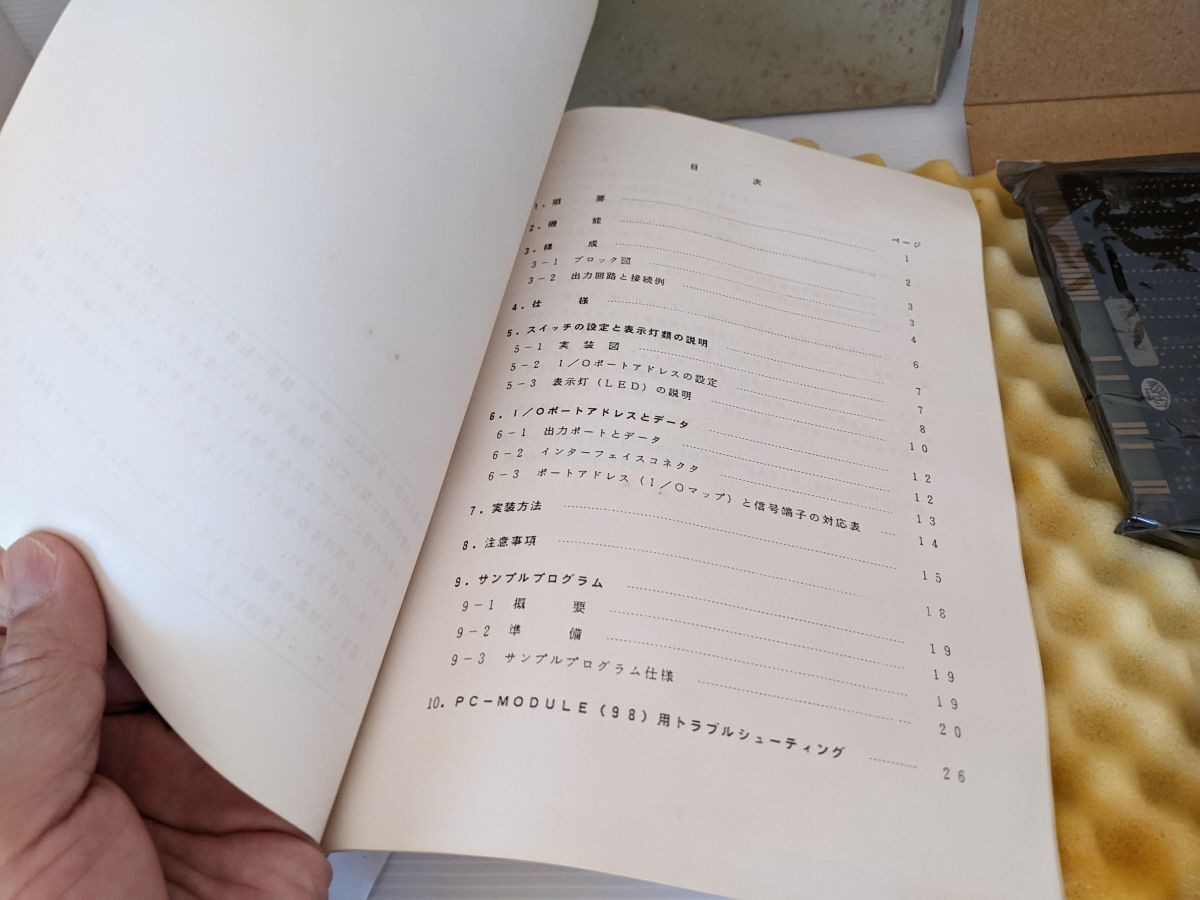 目　次
ページ
1．概　要 1
2．機　能 2
3．構　成 3
3－1　ブロック図 3
3－2　出力回路と接続例 4
4．仕　様 6
5．スイッチの設定と表示灯類の説明 7
5－1　実　装　図 7
5－2　I／Oポートアドレスの設定 8
5－3　表示灯（LED）の説明 10
6．I／Oポートアドレスとデータ 12
6－1　出力ポートとデータ 12
6－2　インターフェイスコネクタ 13
6－3　ポートアドレス（I／Oマップ）と信号端子の対応表 14
7．実装方法 15
8．注意事項 18
9．サンプルプログラム 19
9－1　概　要 19
9－2　準　備 19
9－3　サンプルプログラム仕様 20
10．PC－MODULE（98）用トラブルシューティング 26